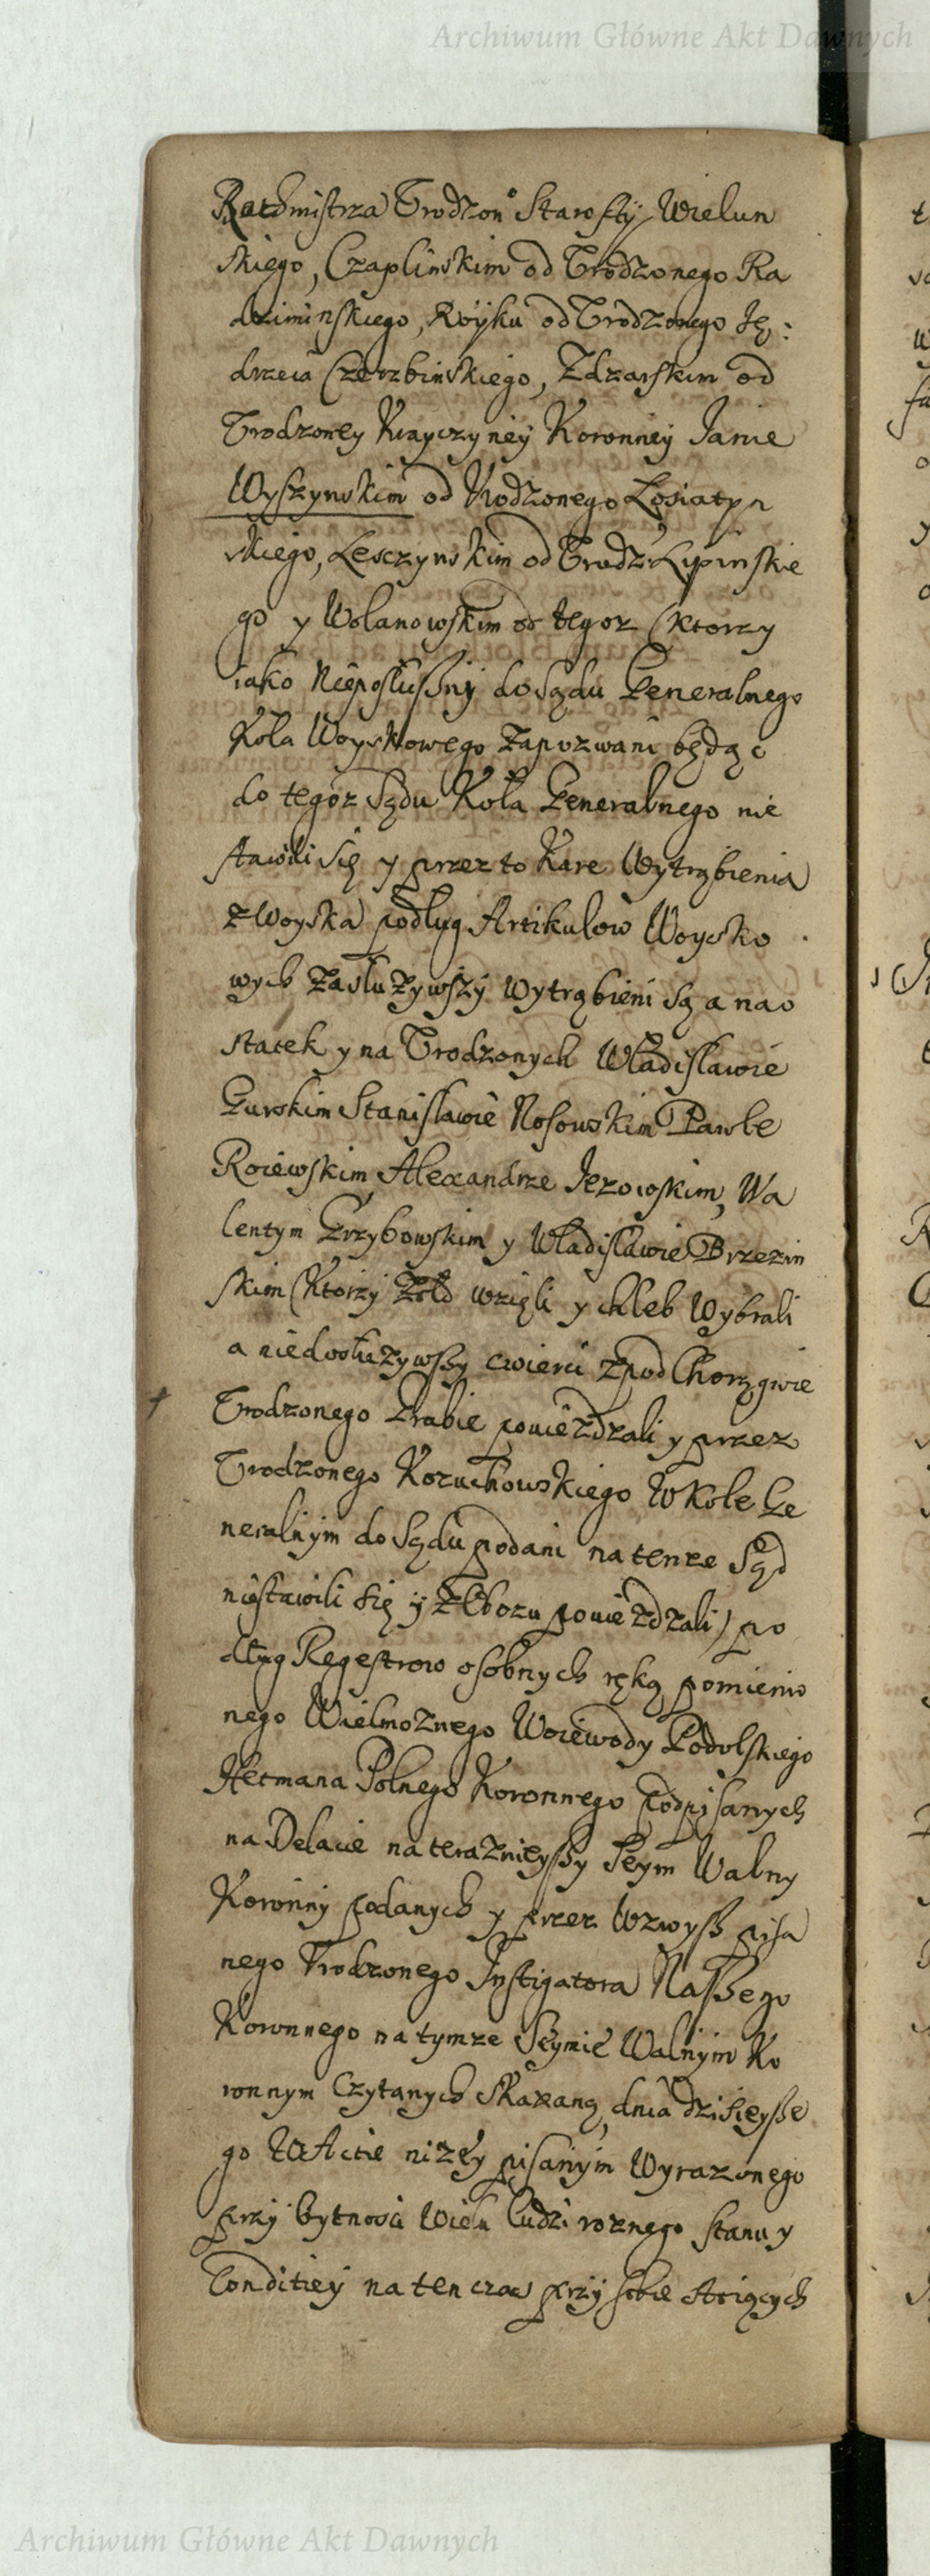 Archiwum Główne Akt Dawnych
Rathmistrza Urodzon° Starosty Wielun
skiego, Czaplinskim od Urodzonego Ra
dziminskiego, Royku od Urodzonego Ję:
drzeia Czerzbinskiego, Zdzarskim od
Urodzoney Krayczyney Koronney Janie
Wyszynskim od Urodzonego Losiatyn
skiego, Lesczynskim od Urodz: Lipinskie
go y Wolanowskim od tegoz (ktorzy
iako Nieposłuszny do Sądu Generalnego
Koła Woyskowego Zapozwani będąc
do tegoz Sądu Koła Generalnego nie
stawili się y przez to Kare Wytrąbienia
z Woyska podług Artikulow Woysko
wych Zasłużywszy Wytrąbieni są a nao
statek y na Urodzonych Władisławie
Gurskim Stanisławie Nosowskim Pawle
Roiewskim Alexandrze Jezowskim, Wa
lentym Grzybowskim y Władisławie Brzezin
skim (ktorzy Zołd wzięli y chleb Wybrali
a niedosłużywszy cwierci zpod Chorągwie
Urodzonego Hrabie poucezdzali y przez
Urodzonego Kozuchowskiego W Kole Ge
neralnym do Sądu podani na tenze Sąd
niestawili się y z Obozu poucezdzali) po
dług Regestrow osobnych ręką pomienio
nego Wielmoznego Woiewody Podolskiego
Hetmana Polnego Koronnego podpisanych
na Delacie na terazniejszy Seym Walny
Koronny podanych y przez Wzwysz pisa
nego Urodzonego Instigatora Naszego
Koronnego na tymze Seymie Walnym Ko
ronnym Czytanych Skazaną, dnia dzisieysze
go W Akcie nizey pisanym Wyrazonego
przy bytnosci Wielu ludzi roznego stanu y
Conditiey na ten czas przy sobie
Archiwum Główne Akt Dawnych